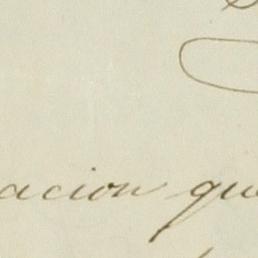 acion que